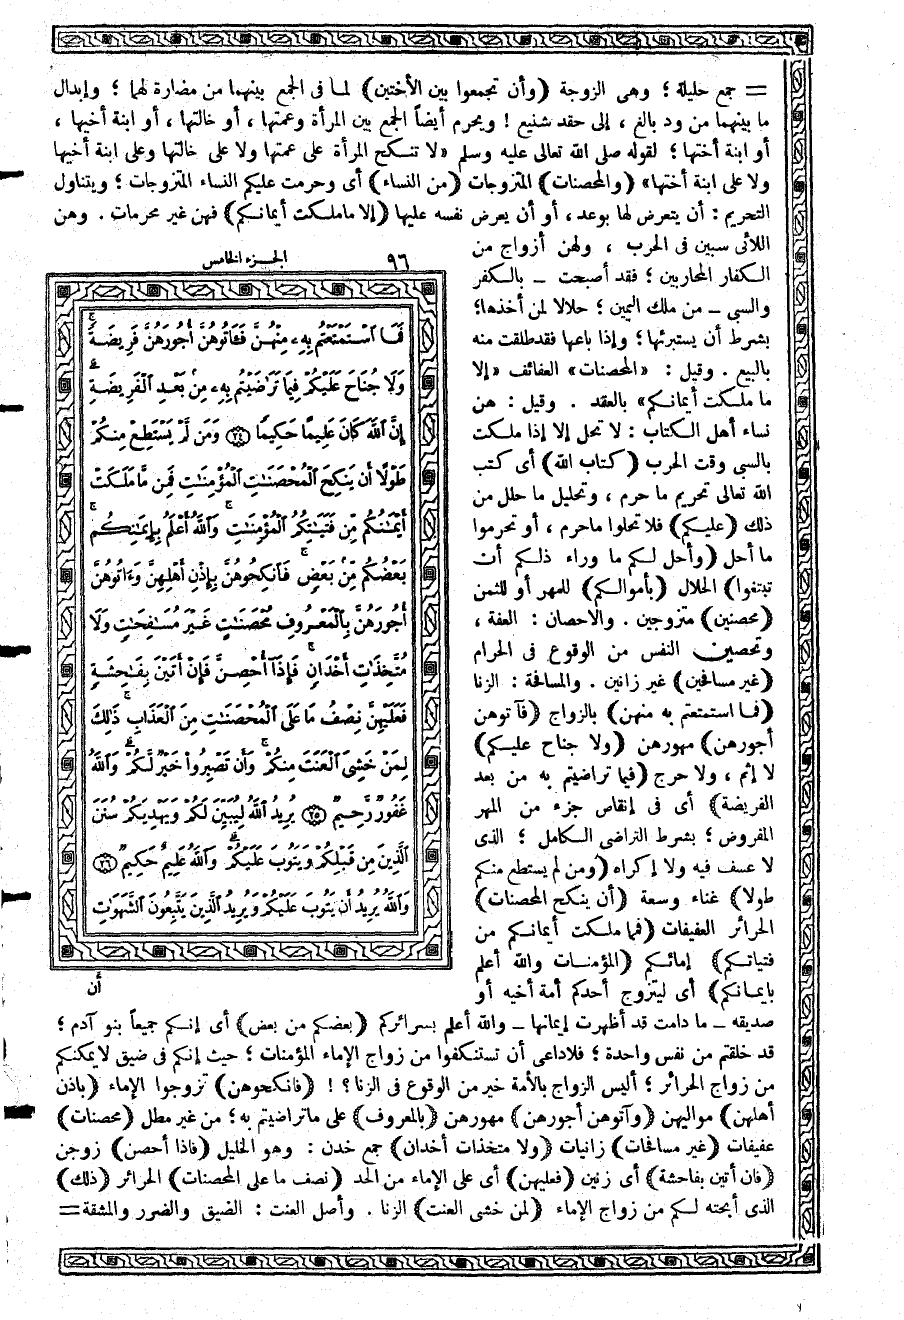 = جمع حليلة ؛ وهى الزوجة (وأن تجمعوا بين الأختين) لما فى الجمع بينهما من مضارة لهما ؛ وإبدال
ما بينهما من ود بالغ ، إلى حقد شنيع ! ويحرم أيضاً الجمع بين المرأة وعمتها ، أو خالتها ، أو ابنة أخيها ،
أو ابنة أختها ؛ لقوله صلى الله تعالى عليه وسلم «لا تنكح المرأة على عمتها ولا على خالتها وعلى ابنة أخيها
ولا على ابنة أختها» (والمحصنات) المتزوجات (من النساء) أى وحرمت عليكم النساء المتزوجات ؛ ويتناول
التحريم : أن يتعرض لها بوعد ، أو أن يعرض نفسه عليها (إلا ما ملكت أيمانكم) فهن غير محرمات . وهن
اللائى سبين فى الحرب ، ولهن أزواج من
الكفار المحاربين ؛ فقد أصبحت – بالكفر
والسبى – من ملك اليمين ؛ حلالا لمن أخذها ؛
بشرط أن يستبرئها ؛ وإذا باعها فقد طلقت منه
بالبيع . وقيل : «المحصنات» العفائف «إلا
ما ملكت أيمانكم» بالعقد . وقيل : هن
نساء أهل الكتاب : لا تحل إلا إذا ملكت
بالسبى وقت الحرب (كتاب الله) أى كتب
الله تعالى تحريم ما حرم ، وتحليل ما حلل من
ذلك (عليكم) فلا تحلوا ما حرم ، أو تحرموا
ما أحل (وأحل لكم ما وراء ذلكم أن
تبتغوا) الحلال (بأموالكم) للمهر أو للثمن
(محصنين) متزوجين . والاحصان : العفة ،
وتحصين النفس من الوقوع فى الحرام
(غير مسافحين) غير زانين . والمسافحة : الزنا
(فما استمتعتم به منهن) بالزواج (فآتوهن
أجورهن) مهورهن (ولا جناح عليكم)
لا إثم ، ولا حرج (فيما تراضيتم به من بعد
الفريضة) أى فى إنقاص جزء من المهر
المفروض ؛ بشرط التراضى الكامل ؛ الذى
لا عسف فيه ولا إكراه (ومن لم يستطع منكم
طولا) غناء وسعة (أن ينكح المحصنات)
الحرائر العفيفات (فما ملكت أيمانكم من
فتياتكم) إمائكم (المؤمنات والله أعلم
بايمانكم) أى ليتزوج أحدكم أمة أخيه أو
الجزء الخامس
٩٦
فَمَا ٱسْتَمْتَعْتُم بِهِۦ مِنْهُنَّ فَـَٔاتُوهُنَّ أُجُورَهُنَّ فَرِيضَةً ۚ
وَلَا جُنَاحَ عَلَيْكُمْ فِيمَا تَرَٰضَيْتُم بِهِۦ مِنۢ بَعْدِ ٱلْفَرِيضَةِ ۚ
إِنَّ ٱللَّهَ كَانَ عَلِيمًا حَكِيمًا ﴿٢٤﴾ وَمَن لَّمْ يَسْتَطِعْ مِنكُمْ
طَوْلًا أَن يَنكِحَ ٱلْمُحْصَنَٰتِ ٱلْمُؤْمِنَٰتِ فَمِن مَّا مَلَكَتْ
أَيْمَٰنُكُم مِّن فَتَيَٰتِكُمُ ٱلْمُؤْمِنَٰتِ ۚ وَٱللَّهُ أَعْلَمُ بِإِيمَٰنِكُم ۚ
بَعْضُكُم مِّنۢ بَعْضٍ ۚ فَٱنكِحُوهُنَّ بِإِذْنِ أَهْلِهِنَّ وَءَاتُوهُنَّ
أُجُورَهُنَّ بِٱلْمَعْرُوفِ مُحْصَنَٰتٍ غَيْرَ مُسَٰفِحَٰتٍ وَلَا
مُتَّخِذَٰتِ أَخْدَانٍ ۚ فَإِذَآ أُحْصِنَّ فَإِنْ أَتَيْنَ بِفَٰحِشَةٍ
فَعَلَيْهِنَّ نِصْفُ مَا عَلَى ٱلْمُحْصَنَٰتِ مِنَ ٱلْعَذَابِ ۚ ذَٰلِكَ
لِمَنْ خَشِىَ ٱلْعَنَتَ مِنكُمْ ۚ وَأَن تَصْبِرُوا۟ خَيْرٌ لَّكُمْ ۗ وَٱللَّهُ
غَفُورٌ رَّحِيمٌ ﴿٢٥﴾ يُرِيدُ ٱللَّهُ لِيُبَيِّنَ لَكُمْ وَيَهْدِيَكُمْ سُنَنَ
ٱلَّذِينَ مِن قَبْلِكُمْ وَيَتُوبَ عَلَيْكُمْ ۗ وَٱللَّهُ عَلِيمٌ حَكِيمٌ ﴿٢٦﴾
وَٱللَّهُ يُرِيدُ أَن يَتُوبَ عَلَيْكُمْ وَيُرِيدُ ٱلَّذِينَ يَتَّبِعُونَ ٱلشَّهَوَٰتِ
أن
صديقه – ما دامت قد أظهرت إيمانها – والله أعلم بسرائركم (بعضكم من بعض) أى إنكم جميعاً بنو آدم ؛
قد خلقتم من نفس واحدة ؛ فلا داعى أن تستنكفوا من زواج الإماء المؤمنات ؛ حيث إنكم فى ضيق لا يمكنكم
من زواج الحرائر ؛ أليس الزواج بالأمة خير من الوقوع فى الزنا ؟ ! (فانكحوهن) تزوجوا الإماء (باذن
أهلهن) مواليهن (وآتوهن أجورهن) مهورهن (بالمعروف) على ما تراضيتم به ؛ من غير مطل (محصنات)
عفيفات (غير مسافحات) زانيات (ولا متخذات أخدان) جمع خدن : وهو الخليل (فاذا أحصن) زوجن
(فان أتين بفاحشة) أى زنين (فعليهن) أى على الإماء من الحد (نصف ما على المحصنات) الحرائر (ذلك)
الذى أبحته لكم من زواج الإماء (لمن خشى العنت) الزنا . وأصل العنت : الضيق والضرر والمشقة =
٧